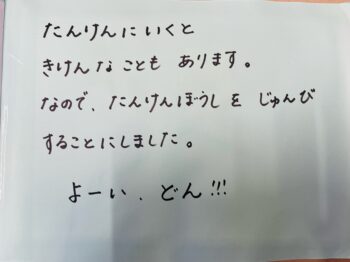 たんけんにいくと
きけんなことも あります。
なので、たんけんぼうしを じゅんび
することにしました。
よーい、どん!!!